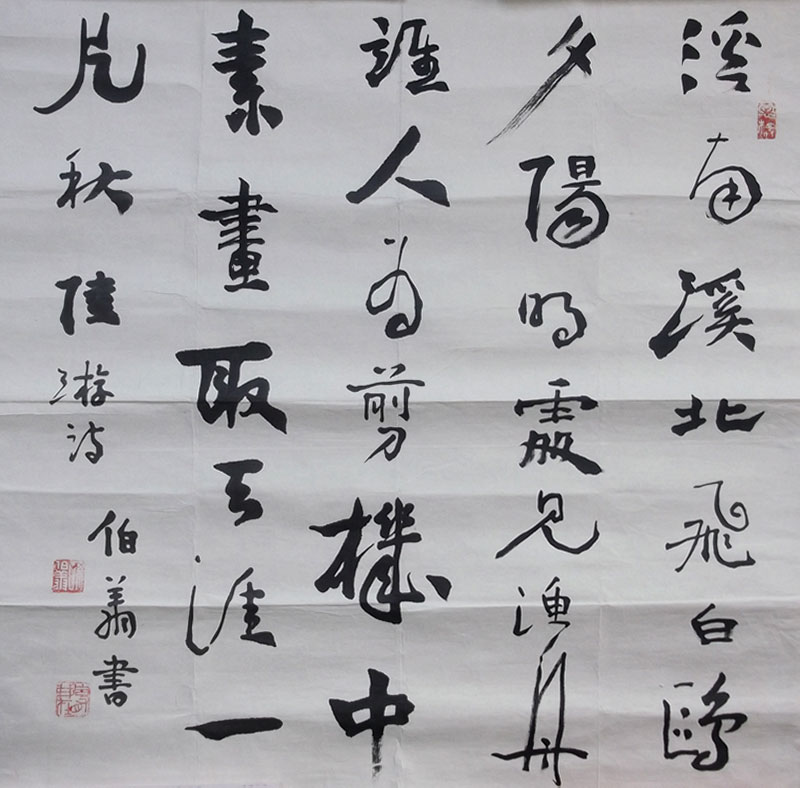 溪南溪北飛白鷗
夕陽明處見漁舟
誰人為剪機中
素畫取天涯一
片秋 陸游詩
伯 書